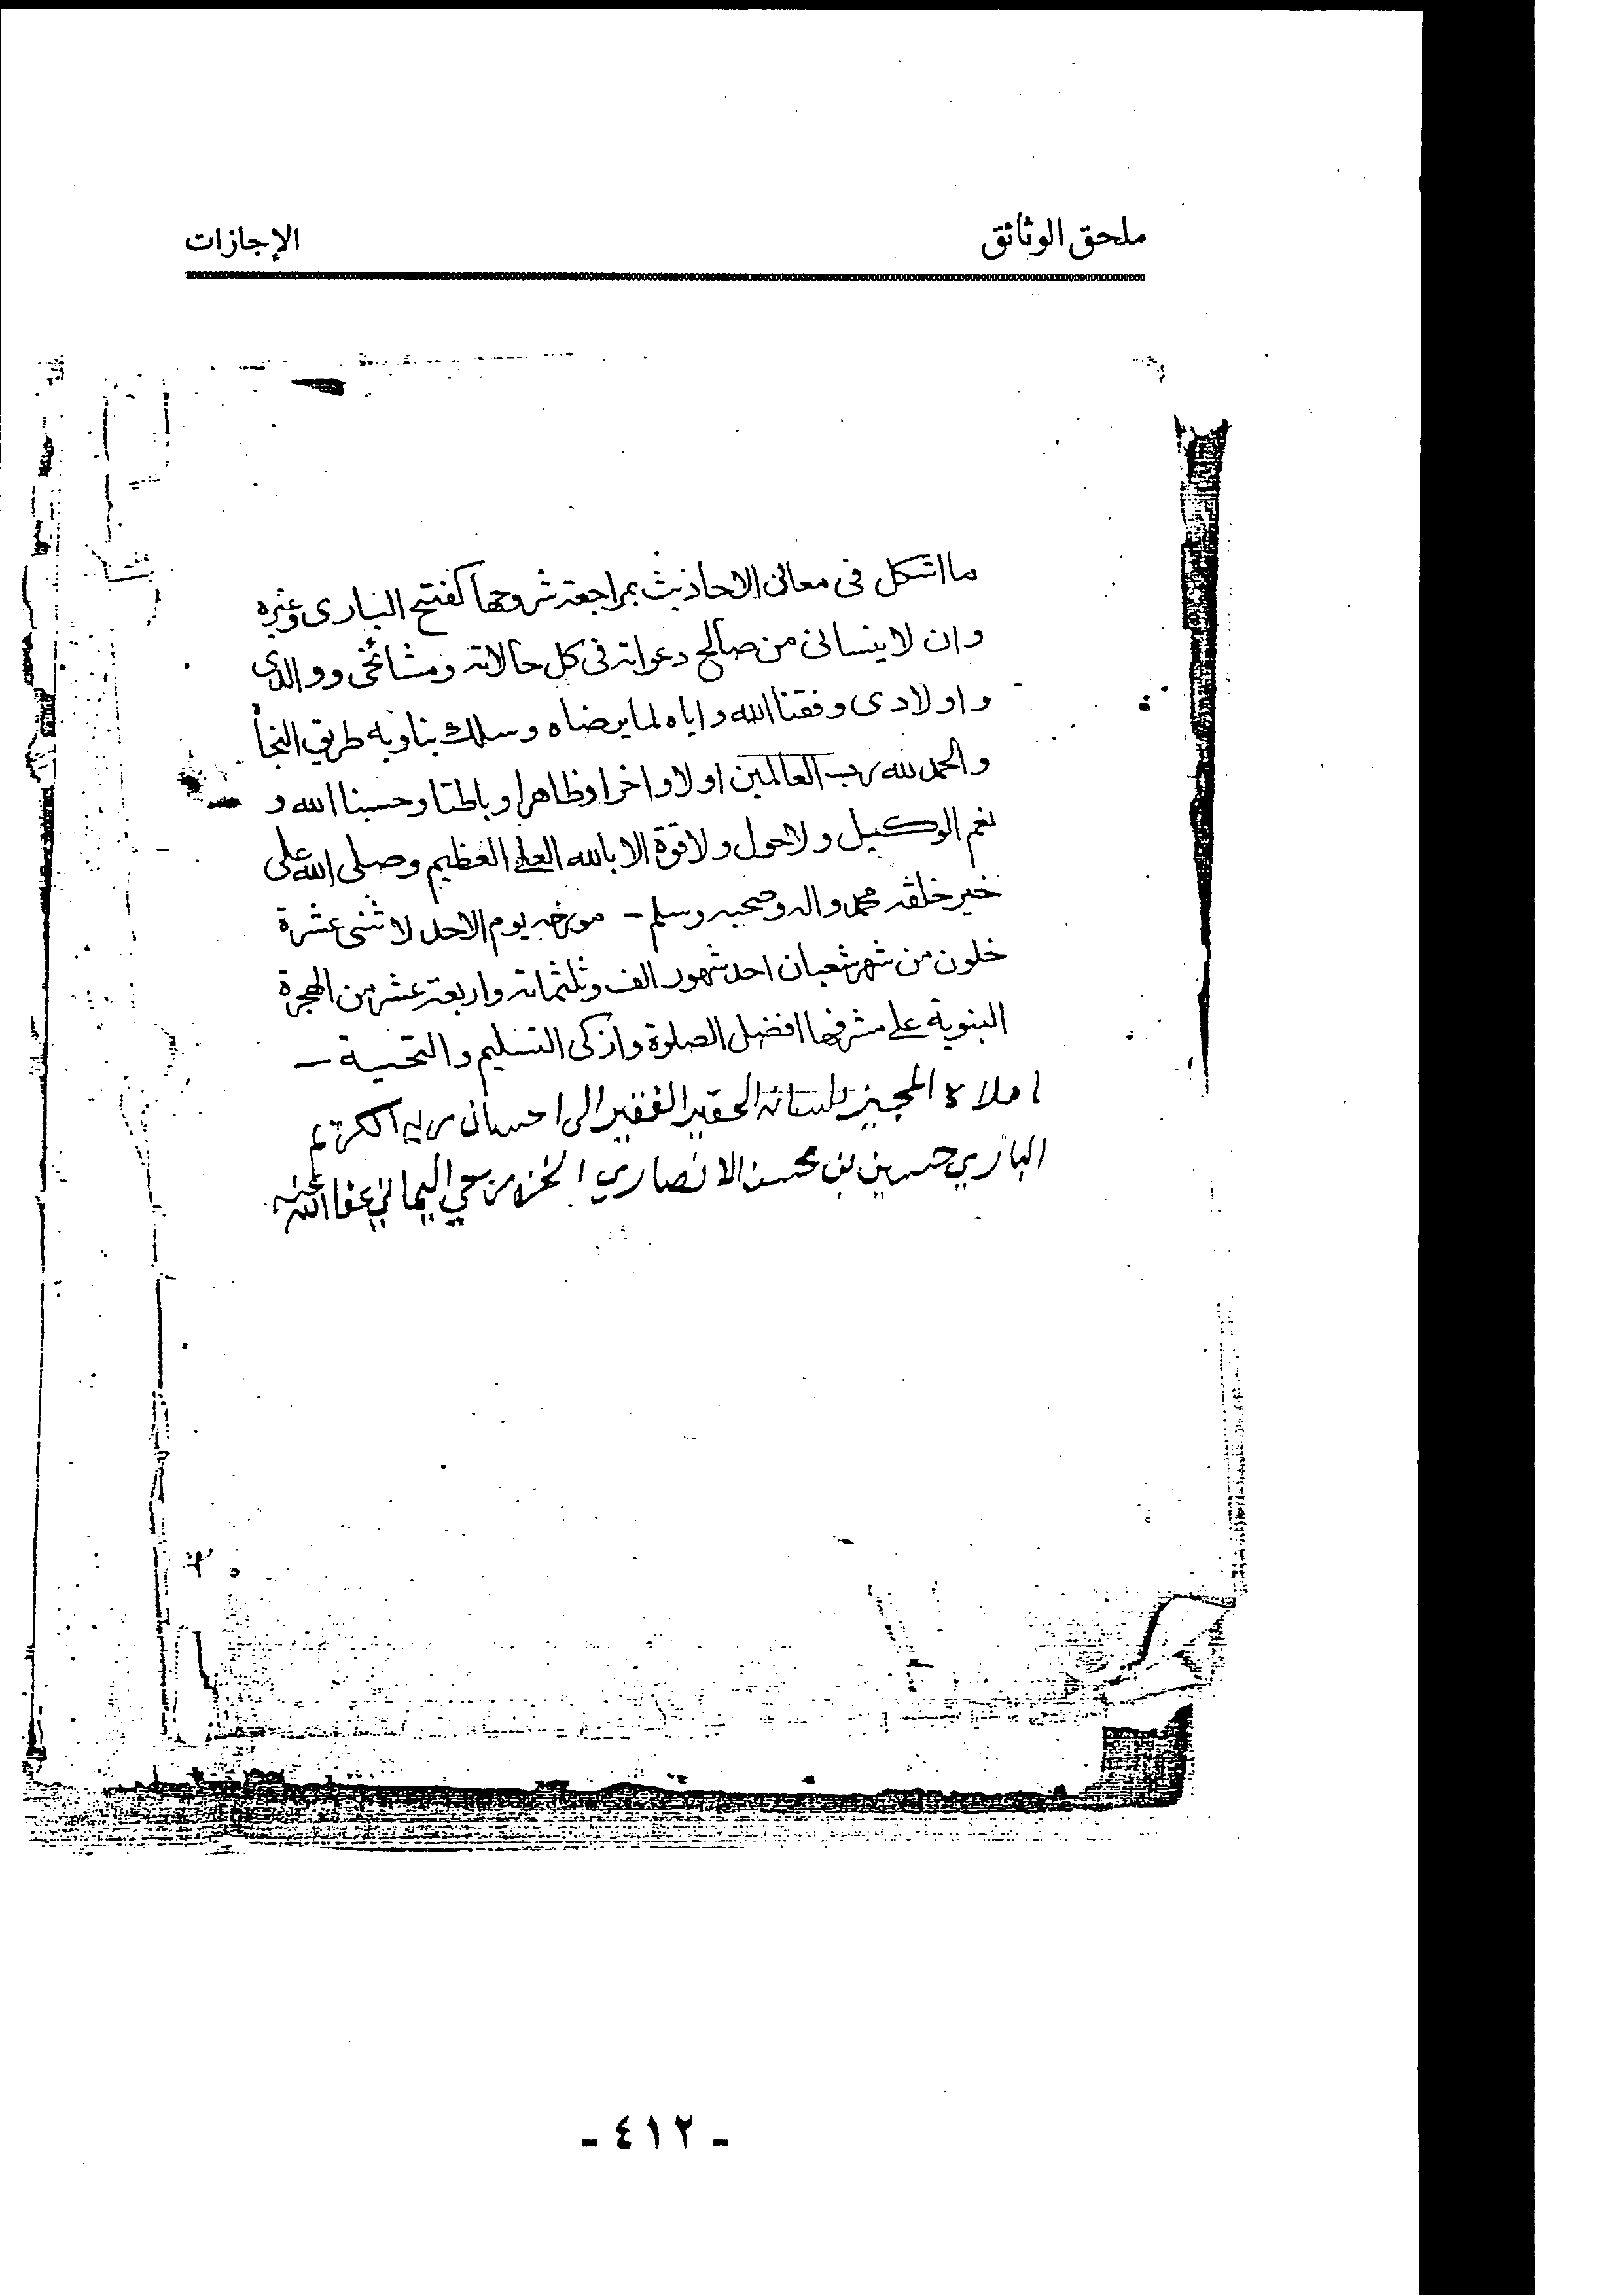 ملحق الوثائق
الإجازات
ما اشكل فى معانى الاحاديث بمراجعة شروحها كفتح البارى وغيره
وان لا ينسانى من صالح دعواته فى كل حالاته ومشائخى ووالدى
واولادى وفقنا الله واياه لما يرضاه وسلك بنا وبه طريق النجاة
والحمد لله رب العالمين اولا واخرا وظاهرا وباطنا وحسبنا الله و
نعم الوكيل ولا حول ولا قوة الا بالله العلى العظيم وصلى الله على
خير خلقه محمد واله وصحبه وسلم - مورخه يوم الاحد لاثنى عشرة
خلون من شهر شعبان احد شهور الف وثلثمائة واربعة عشر من الهجرة
النبوية على مشرفها افضل الصلوة وازكى التسليم والتحية -
املاه المجيز بلسانه الحقير الفقير الى احسان ربه الكريم
البازي حسين بن محسن الانصاري الخزرجي السعدي اليماني عفا الله عنه
- ٤١٢ -